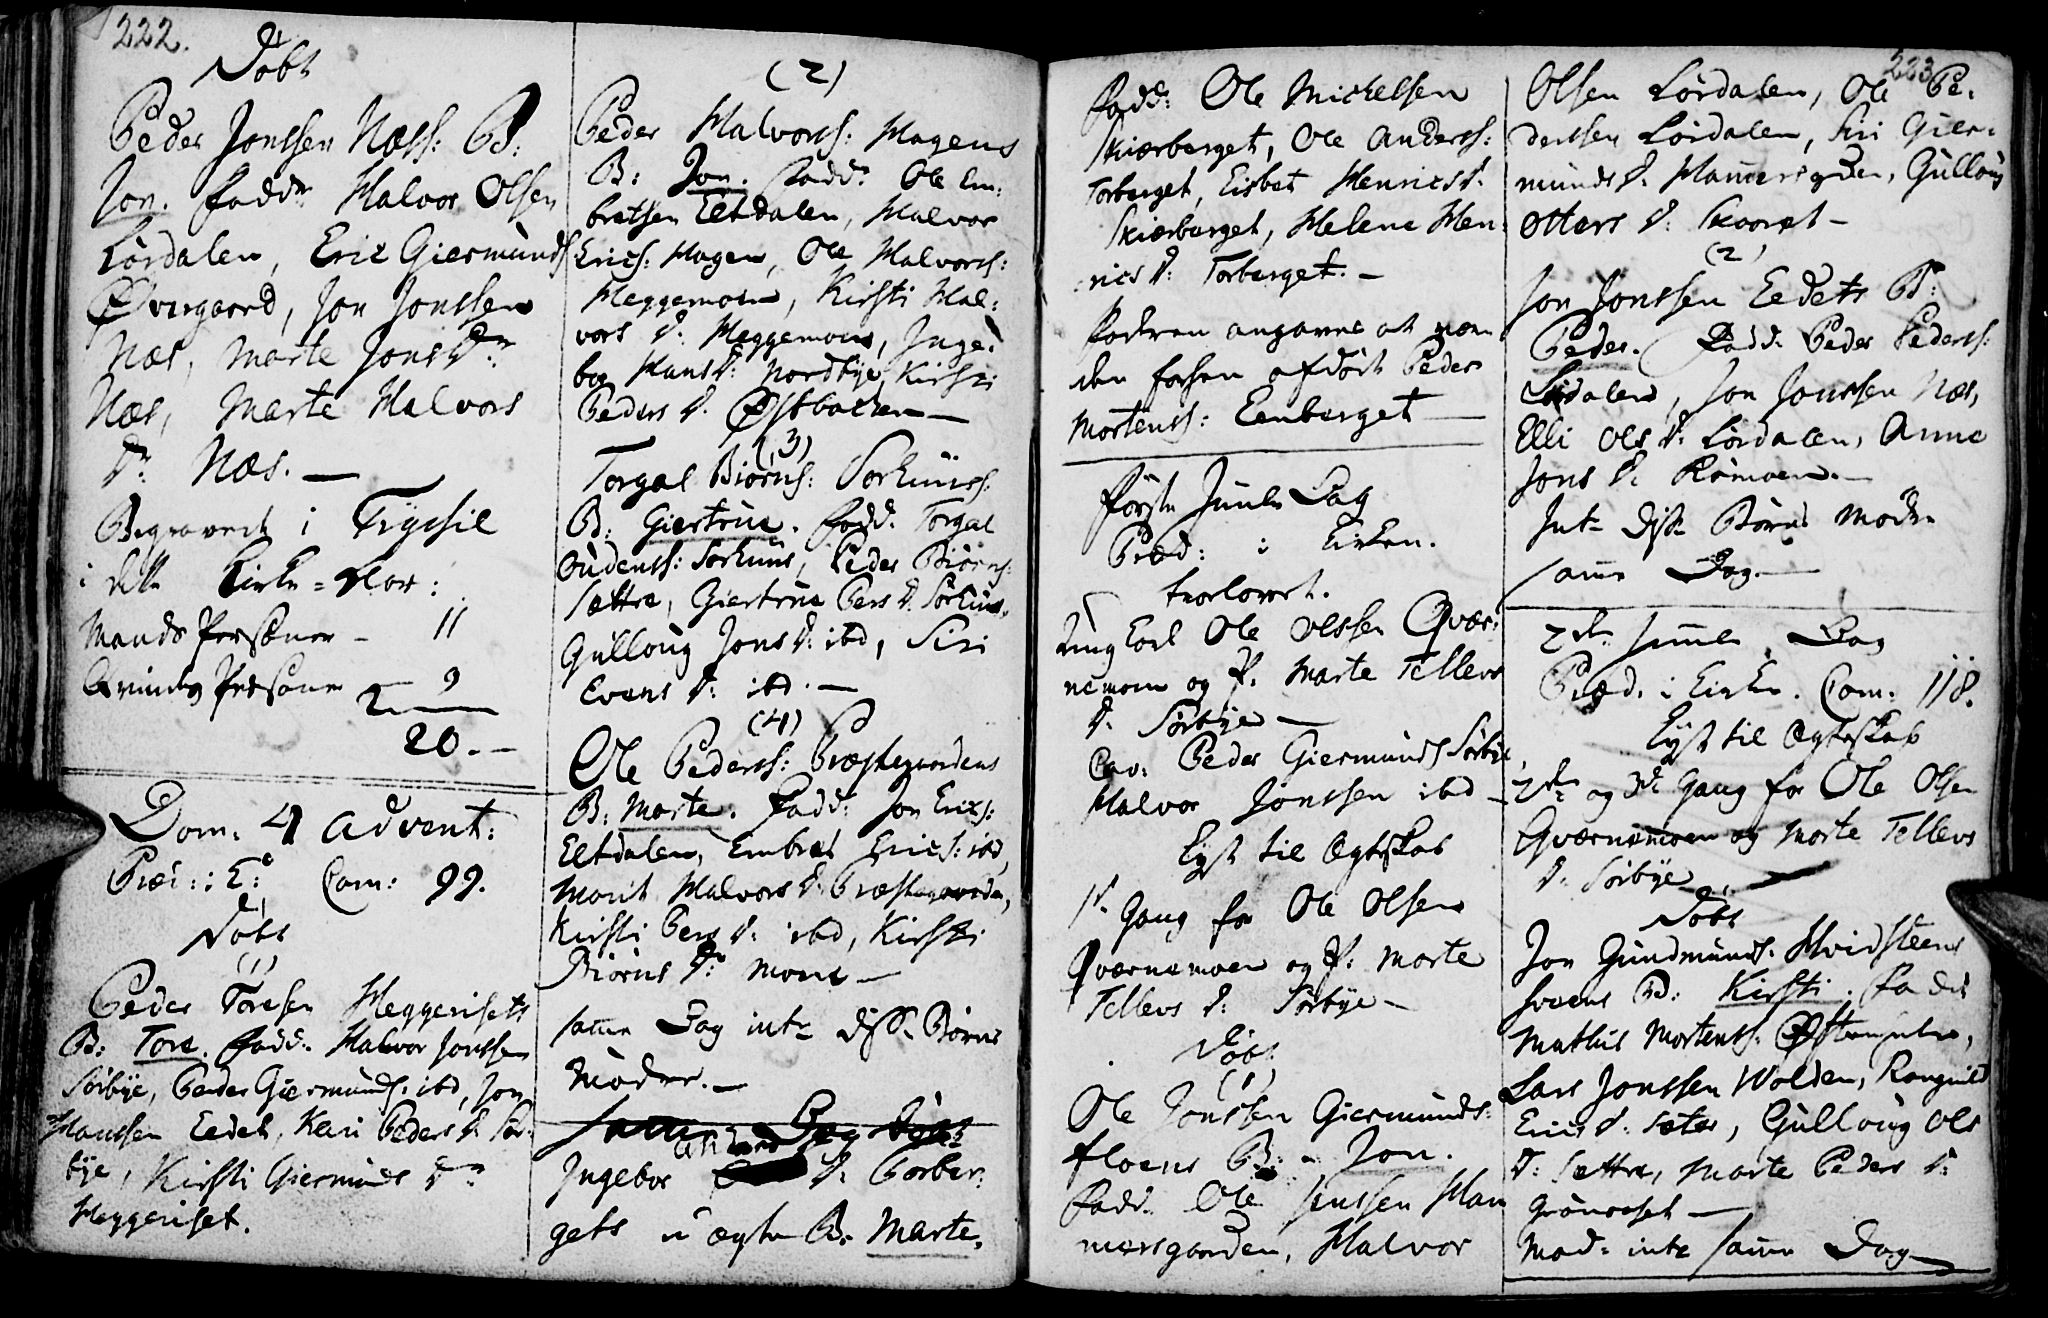 222.
Döbt
Peder Jonssen Næss: B:
Jon. Fadd: Halvor Olsen
Lördalen, Eric Giermunds:
Øvergaard, Jon Jonssen
Næs, Marte Jons D:
Næs, Marte Halvors
D: Næs. —
Begravet i Trysil
i dette Kirke-Aar:
Mands Personer — 11
Qvindes Personer 9
20. —
Dom. 4 Advent:
Præd: i K: Com: 99.
Döbt
(1)
Peder Toresen Heggerisets
B: Tore. Fadd: Halvor Jonssen
Sörbye, Peder Giermunds: ibd, Jon
Hanssen Eedet, Kari Peders D: Sör-
bye, Kirsti Giermunds D:
Heggeriset.
(2)
Peder Halvorss: Hagens
B: Jon. Fadd: Ole Em:
bretsen Eltdalen, Halvor
Erics: Hagen, Ole Halvorss:
Heggemoen, Kirsti Hal:
vors D: Heggemoen, Inge:
bor Hans D: Nordbye, Kirsti
Peders D: Østbacken —
(3)
Torgal Biörns: Sorhuuss
B: Giertrue. Fadd: Torgal
Oudenss: Sorhuus, Peder Biörns:
Sættre, Giertrue Pers D: Sörhuus,
Gulloug Jons D: ibd, Siri
Evens D: ibd. —
(4)
Ole Pederss: Præstegaardens
B: Marte. Fadd: Jon Erics:
Eltdalen, Embret Erics: ibd,
Marit Halvors D: Præstegaarden,
Kirsti Pers D: ibd, Kirsti
Biörns D: Moen —
samme Dag intr: disse Börns
Mödre. —
samme Dag döbt
Anders
Ingebor D: Borber:
gets uægte B: Marte.
223
Fadd: Ole Michelsen
Skiærberget, Ole Anderss:
Torberget, Eisbet Henrics D:
Skiærberget, Helene Hen:
rics D: Torberget. —
Faderen angaves at være
den forhen afdöde Peder
Mortenss: Eenberget —
Förste Juule Dag
Præd: i Kirken.
Trolovet.
Ung Carl Ole Olssen Qvær:
nemoen og P. Marte Tellevs
D: Sörbye —
Cav: Peder Giermunds Sörbye,
Halvor Jonssen ibd —
Lyst til Ægteskab
1te Gang for Ole Olsen
Qværnemoen og P: Marte
Tellevs D: Sörbye —
Döbt
(1)
Ole Jonssen Giermunds:
floens B: Jon.
Fadd: Ole Jenssen Ham
mersgaarden, Halvor
Olsen Lördalen, Ole Pe:
derssen Lördalen, Siri Gier:
munds D: Hammersgaarden, Gulloug
Ottars D: Skooret —
(2)
Jon Jonssen Eedets B:
Peder. Fadd: Peder Pederss:
Lördalen, Jon Jonssen Næs,
Elli Ols D: Lördalen, Anne
Jons D: Römoen. —
Intr: disse Börns Mödre
samme Dag. —
2den Juule Dag
Præd. i Kirken. Com: 118.
Lyst til Ægteskab
2den og 3de Gang for Ole Olsen
Qværnemoen og Marte Tellevs
D: Sörbye. —
Döbt
Jon Gundmunds: Hvidsteens
B: Kirsti. Fadd:
Mathis Mortenss:
Lars Jonssen Wolden, Rangnild
Erics D: Sæter, Gulloug Ols
D: Sættre, Marte Peders D:
Grönoset —
Mod: intr: samme Dag —